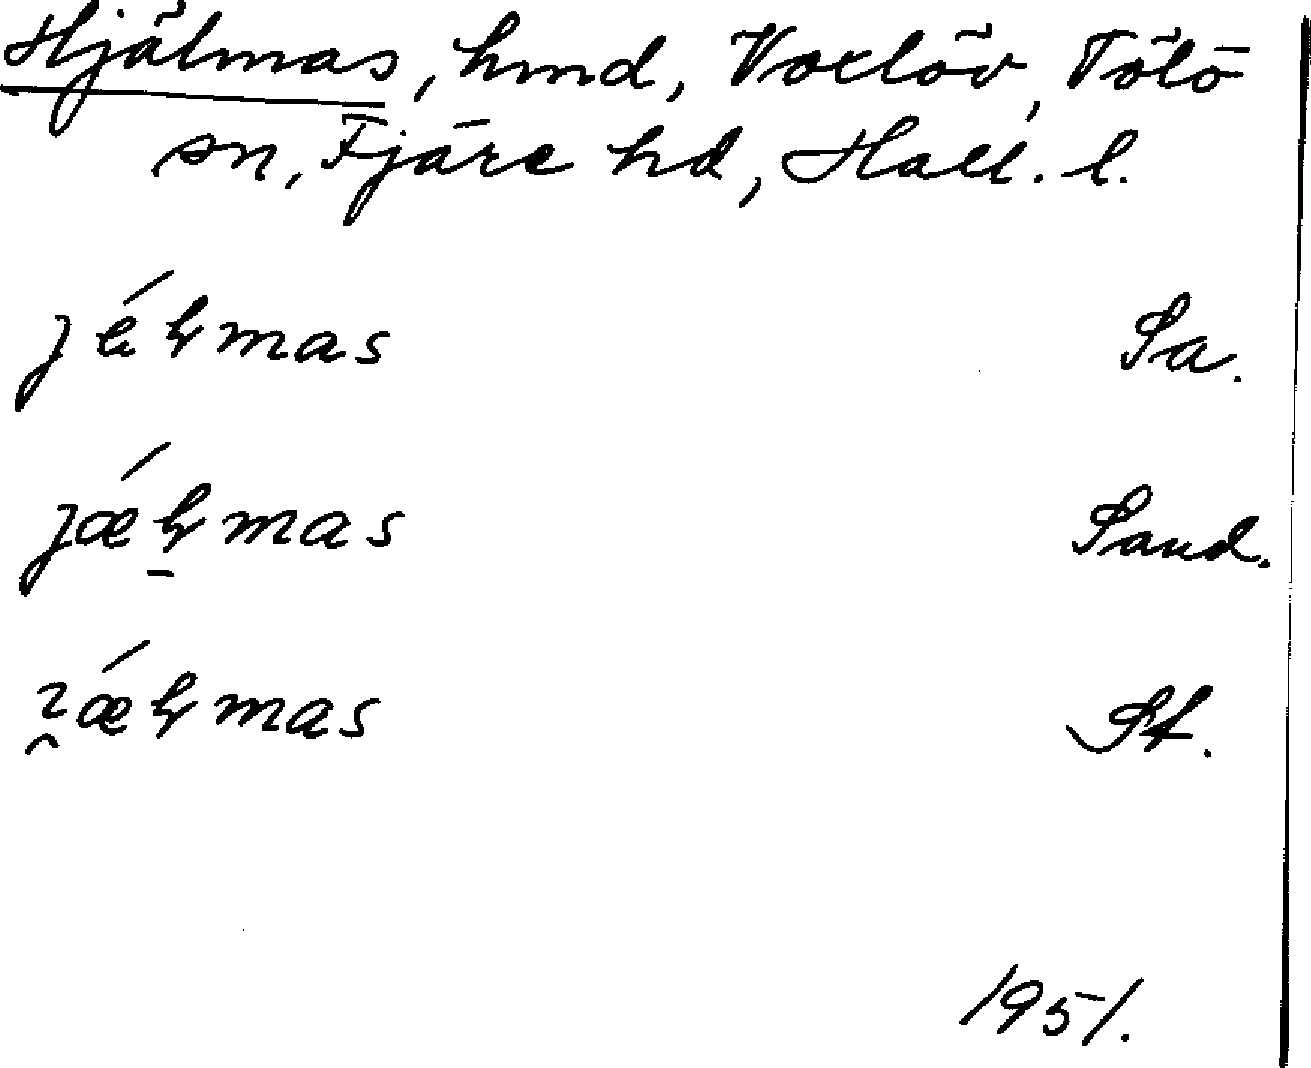 Hjälmas, hmd, Voxlöv, Tölö
sn, Fjäre hd, Hall. l.
jéꞎmas Sa.
jǽꞎ̠mas Sand.
ɿ̯ǽꞎmas St.
1951.